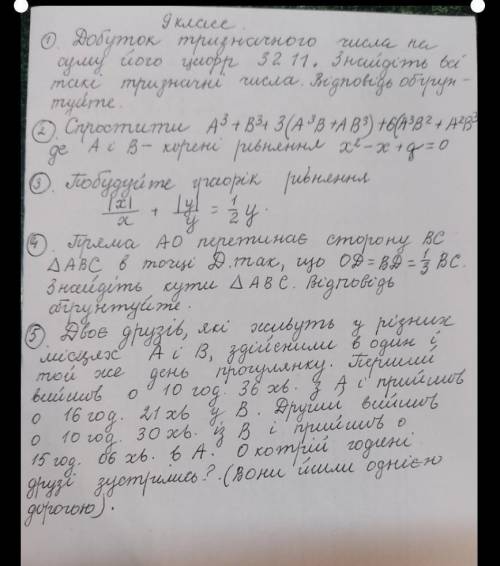 9 класс.
① Добуток тризначного числа на
суму його цифр 3211. Знайдіть всі
такі тризначні числа. Відповідь обґрун-
туйте.
② Спростити A³+B³+3(A³B+AB³)+6(A³B²+A²B³
де A і B - корені рівняння x²-x+q=0
③ Побудуйте графік рівняння
|x|/x + |y|/y = 1/2 y.
④ Пряма AO перетинає сторону BC
△ABC в точці D. так, що OD=BD=1/3 BC.
Знайдіть кути △ABC. Відповідь
обґрунтуйте.
⑤ Двоє друзів, які живуть у різних
місцях A і B, здійснили в один і
той же день прогулянку. Перший
вийшов о 10 год. 36 хв. з A і прийшов
о 16 год. 21 хв у B. Другий вийшов
о 10 год. 30 хв. із B і прийшов о
15 год. 06 хв. в A. О котрій годині
друзі зустрілись? (Вони йшли однією
дорогою).